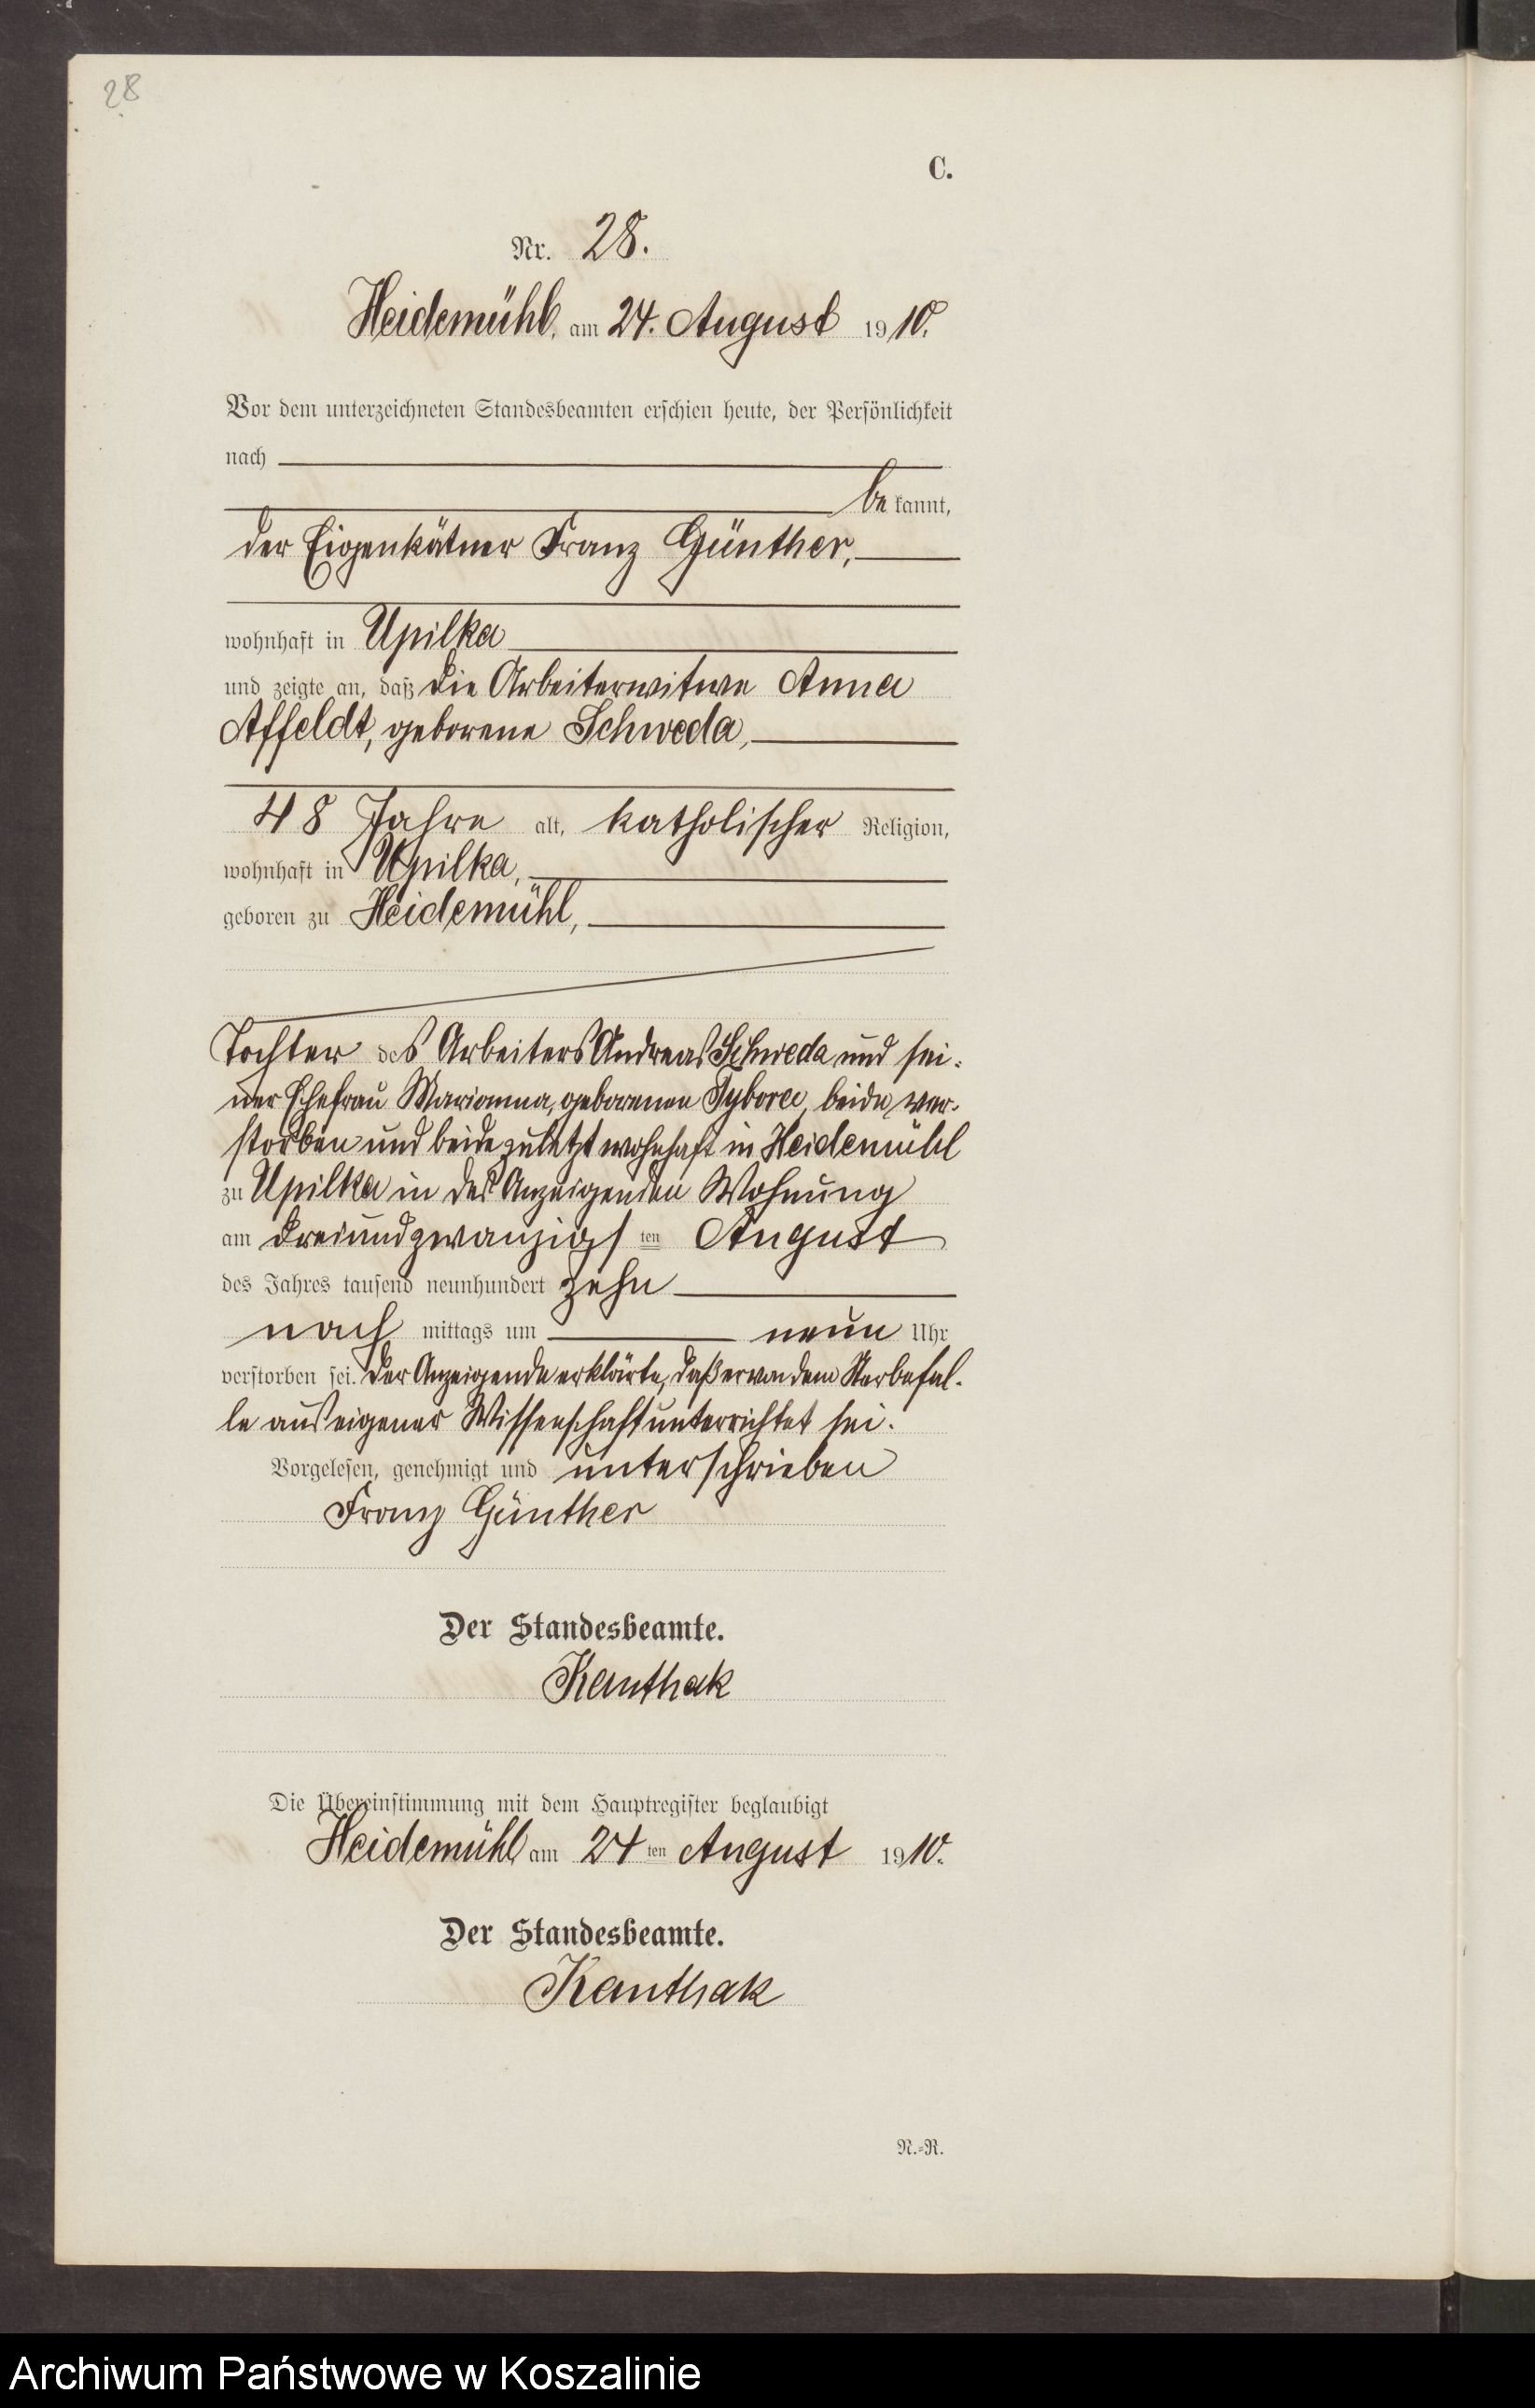 28
C.
Nr. 28.
Heidemühl, am 24. August 1910.
Vor dem unterzeichneten Standesbeamten erschien heute, der Persönlichkeit
nach
be kannt,
der Eigenkätner Franz Günther,
wohnhaft in Upilka
und zeigte an, daß die Arbeiterwitwe Anna
Affeldt, geborene Schweda,
48 Jahre alt, katholischer Religion,
wohnhaft in Upilka,
geboren zu Heidemühl,
Tochter des Arbeiters Andreas Schweda und sei-
ner Ehefrau Marianna, geborenen Tybora, beide ver-
storben und beide zuletzt wohnhaft in Heidemühl
zu Upilka in des Anzeigenden Wohnung
am dreiundzwanzigs ten August
des Jahres tausend neunhundert zehn
nach mittags um neun Uhr
verstorben sei. Der Anzeigende erklärte, daß er von dem Sterbefal-
le aus eigener Wissenschaft unterrichtet sei.
Vorgelesen, genehmigt und unterschrieben
Franz Günther
Der Standesbeamte.
Kanthak
Die Übereinstimmung mit dem Hauptregister beglaubigt
Heidemühl am 24 ten August 1910.
Der Standesbeamte.
Kanthak
N.-R.
Archiwum Państwowe w Koszalinie